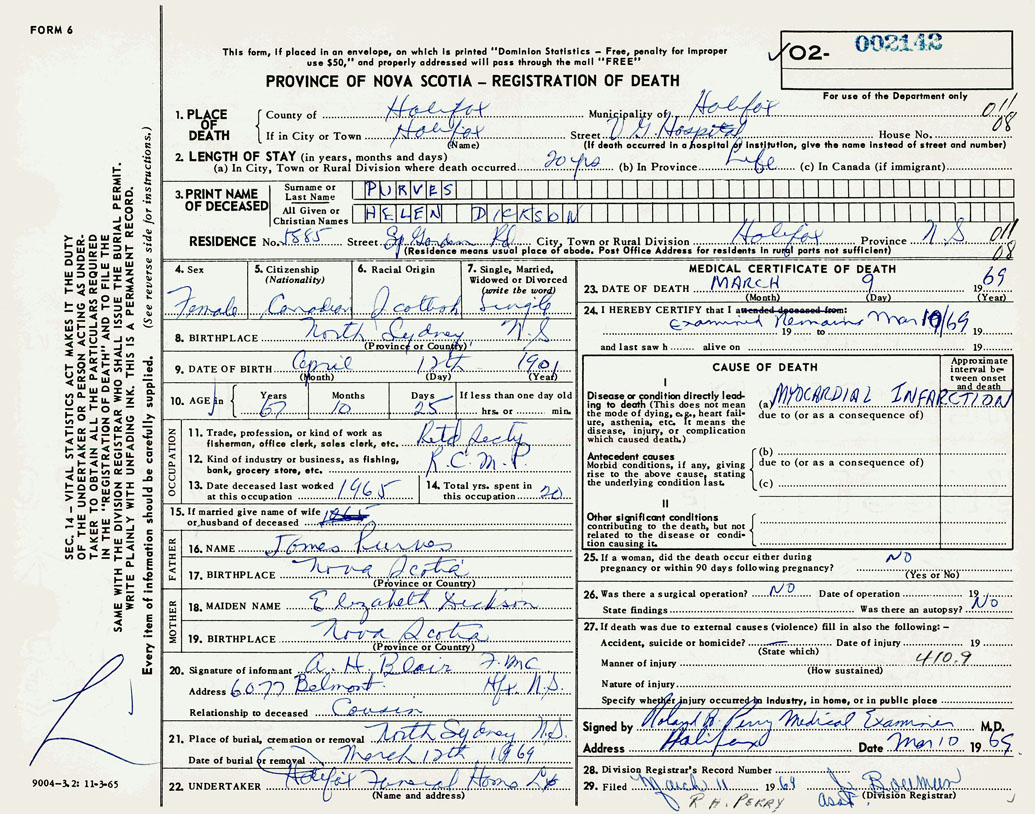 FORM 6
This form, if placed in an envelope, on which is printed "Dominion Statistics – Free, penalty for improper
use $50," and properly addressed will pass through the mail "FREE"
PROVINCE OF NOVA SCOTIA – REGISTRATION OF DEATH
O2- 002142
For use of the Department only
SEC. 14 – VITAL STATISTICS ACT MAKES IT THE DUTY
OF THE UNDERTAKER OR PERSON ACTING AS UNDER-
TAKER TO OBTAIN ALL THE PARTICULARS REQUIRED
IN THE "REGISTRATION OF DEATH" AND TO FILE THE
SAME WITH THE DIVISION REGISTRAR WHO SHALL ISSUE THE BURIAL PERMIT.
WRITE PLAINLY WITH UNFADING INK. THIS IS A PERMANENT RECORD.
Every item of information should be carefully supplied. (See reverse side for instructions.)
9004–3.2: 11-3-65
1. PLACE OF DEATH
County of Halifax Municipality of Halifax 011
If in City or Town Halifax Street V G Hospital House No. 08
(Name) (If death occurred in a hospital or institution, give the name instead of street and number)
2. LENGTH OF STAY (in years, months and days)
(a) In City, Town or Rural Division where death occurred 20 yrs (b) In Province Life (c) In Canada (if immigrant)
3. PRINT NAME OF DECEASED
Surname or Last Name PURVES
All Given or Christian Names HELEN DICKSON
RESIDENCE No. 5885 Street Sp Garden Rd City, Town or Rural Division Halifax Province N.S 011
(Residence means usual place of abode. Post Office Address for residents in rural parts not sufficient) 08
4. Sex Female
5. Citizenship (Nationality) Canadian
6. Racial Origin Scottish
7. Single, Married, Widowed or Divorced (write the word) Single
8. BIRTHPLACE North Sydney N S
(Province or Country)
9. DATE OF BIRTH April 12th 1901
(Month) (Day) (Year)
10. AGE in Years 67 Months 10 Days 25 If less than one day old hrs. or min.
OCCUPATION
11. Trade, profession, or kind of work as fisherman, office clerk, sales clerk, etc. Retd Secty
12. Kind of industry or business, as fishing, bank, grocery store, etc. R.C.M.P.
13. Date deceased last worked at this occupation 1965
14. Total yrs. spent in this occupation 20
15. If married give name of wife or husband of deceased 1965
FATHER
16. NAME James Purves
17. BIRTHPLACE Nova Scotia
(Province or Country)
MOTHER
18. MAIDEN NAME Elizabeth Dickson
19. BIRTHPLACE Nova Scotia
(Province or Country)
20. Signature of informant A. H. Blair
Address 6077 Belmont Hfx N.S.
Relationship to deceased Cousin
21. Place of burial, cremation or removal North Sydney N.S.
Date of burial or removal March 12th 1969
22. UNDERTAKER Halifax Funeral Home
(Name and address)
MEDICAL CERTIFICATE OF DEATH
23. DATE OF DEATH MARCH 9 1969
(Month) (Day) (Year)
24. I HEREBY CERTIFY that I attended deceased from:
Examined Remains Mar 10/69 19 to 19
and last saw h alive on 19
CAUSE OF DEATH
Approximate interval between onset and death
I
Disease or condition directly leading to death (This does not mean the mode of dying, e.g., heart failure, asthenia, etc. It means the disease, injury, or complication which caused death.)
(a) MYOCARDIAL INFARCTION
due to (or as a consequence of)
Antecedent causes
Morbid conditions, if any, giving rise to the above cause, stating the underlying condition last.
(b)
due to (or as a consequence of)
(c)
II
Other significant conditions contributing to the death, but not related to the disease or condition causing it.
25. If a woman, did the death occur either during pregnancy or within 90 days following pregnancy? NO
(Yes or No)
26. Was there a surgical operation? NO Date of operation 19
State findings Was there an autopsy? No
27. If death was due to external causes (violence) fill in also the following: –
Accident, suicide or homicide? Date of injury 19
(State which)
Manner of injury 410.9
(How sustained)
Nature of injury
Specify whether injury occurred in industry, in home, or in public place
Signed by Roland H. Perry Medical Examiner M.D.
Address Halifax Date Mar 10 1969
28. Division Registrar's Record Number
29. Filed March 11 1969
asst. (Division Registrar)
R H. PERRY